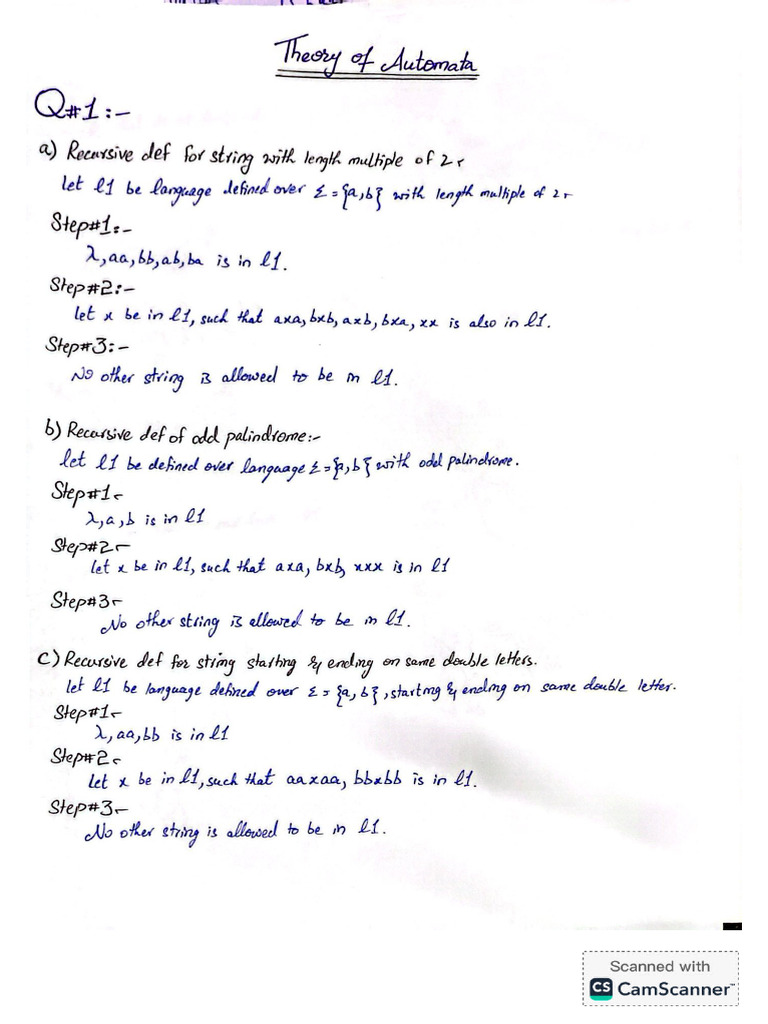 Theory of Automata
Q#1:-
a) Recursive def for string with length multiple of 2:-
let l1 be language defined over Σ = {a,b} with length multiple of 2:-
Step#1:-
λ,aa,bb,ab,ba is in l1.
Step#2:-
let x be in l1, such that axa, bxb, axb, bxa, xx is also in l1.
Step#3:-
No other string is allowed to be in l1.
b) Recursive def of odd palindrome:-
let l1 be defined over language Σ = {a,b} with odd palindrome.
Step#1:-
λ,a,b is in l1
Step#2:-
let x be in l1, such that axa, bxb, xxx is in l1
Step#3:-
No other string is allowed to be in l1.
c) Recursive def for string starting & ending on same double letters.
let l1 be language defined over Σ = {a,b}, starting & ending on same double letter.
Step#1:-
λ,aa,bb is in l1
Step#2:-
let x be in l1, such that aaxaa, bbxbb is in l1.
Step#3:-
No other string is allowed to be in l1.
Scanned with
CS CamScanner